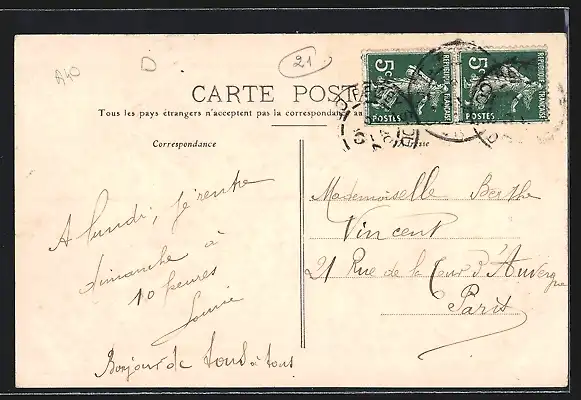 A40
D
21
CARTE POSTALE
Tous les pays étrangers n'acceptent pas la correspondance au
Correspondance
Adresse
5c 5c
POSTES POSTES
REPUBLIQUE FRANÇAISE
REPUBLIQUE FRANÇAISE
A lundi, je rentre
dimanche à
10 heures
Louise
Bonjour de tous à tous
Mademoiselle Berthe
Vincent
21 Rue de la Cour d'Auvergne
Paris